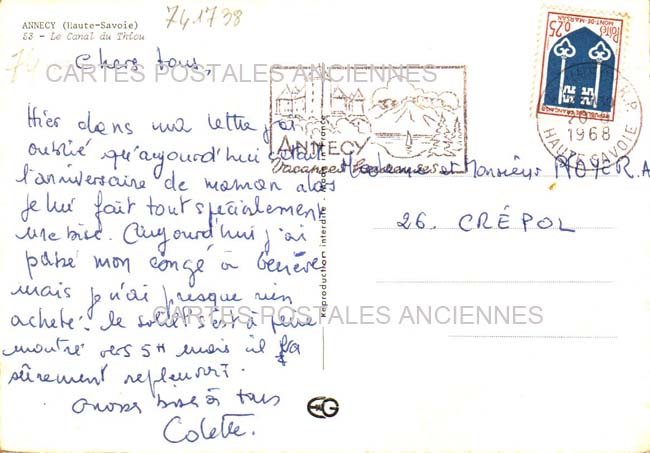 741738
74
ANNECY (Haute-Savoie)
53 - Le Canal du Thiou
Chers tous,
CARTES POSTALES ANCIENNES
Hier dans ma lettre j'ai
oublié qu'aujourd'hui c'était
l'anniversaire de maman alors
je lui fait tout spécialement
une bise. Aujourd'hui j'ai
passé mon congé à Genève
mais je n'ai presque rien
acheté. le soleil s'est à peine
montré vers 5H mais il
sûrement repleuvoir.
Grosses bises à tous
Colette.
Reproduction interdite - Made in France
EG
ANNECY
Vacances
POSTES
MONT-DE-MARSAN
0,25
REPUBLIQUE FRANCAISE
R.P.
20
1968
HAUTE-SAVOIE
Madame et Monsieur ROYER A
26. CRÉPOL
CARTES POSTALES ANCIENNES